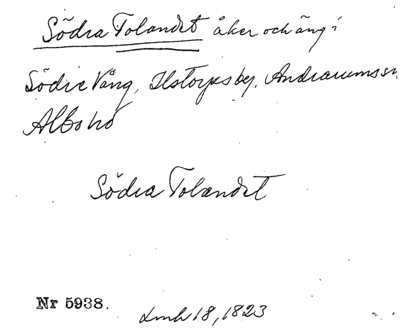 Södra Tolandet åker och äng i
Södre Vång, Ilstorps by, Andrarums sn,
Albo hd
Södra Tolandet
Nr 5938.
Lmh 18, 1823